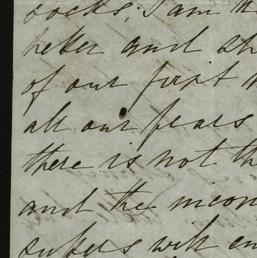 socks; I am th
better and sh
of our first
all our fears
there is not th
and the incon
suffers with en